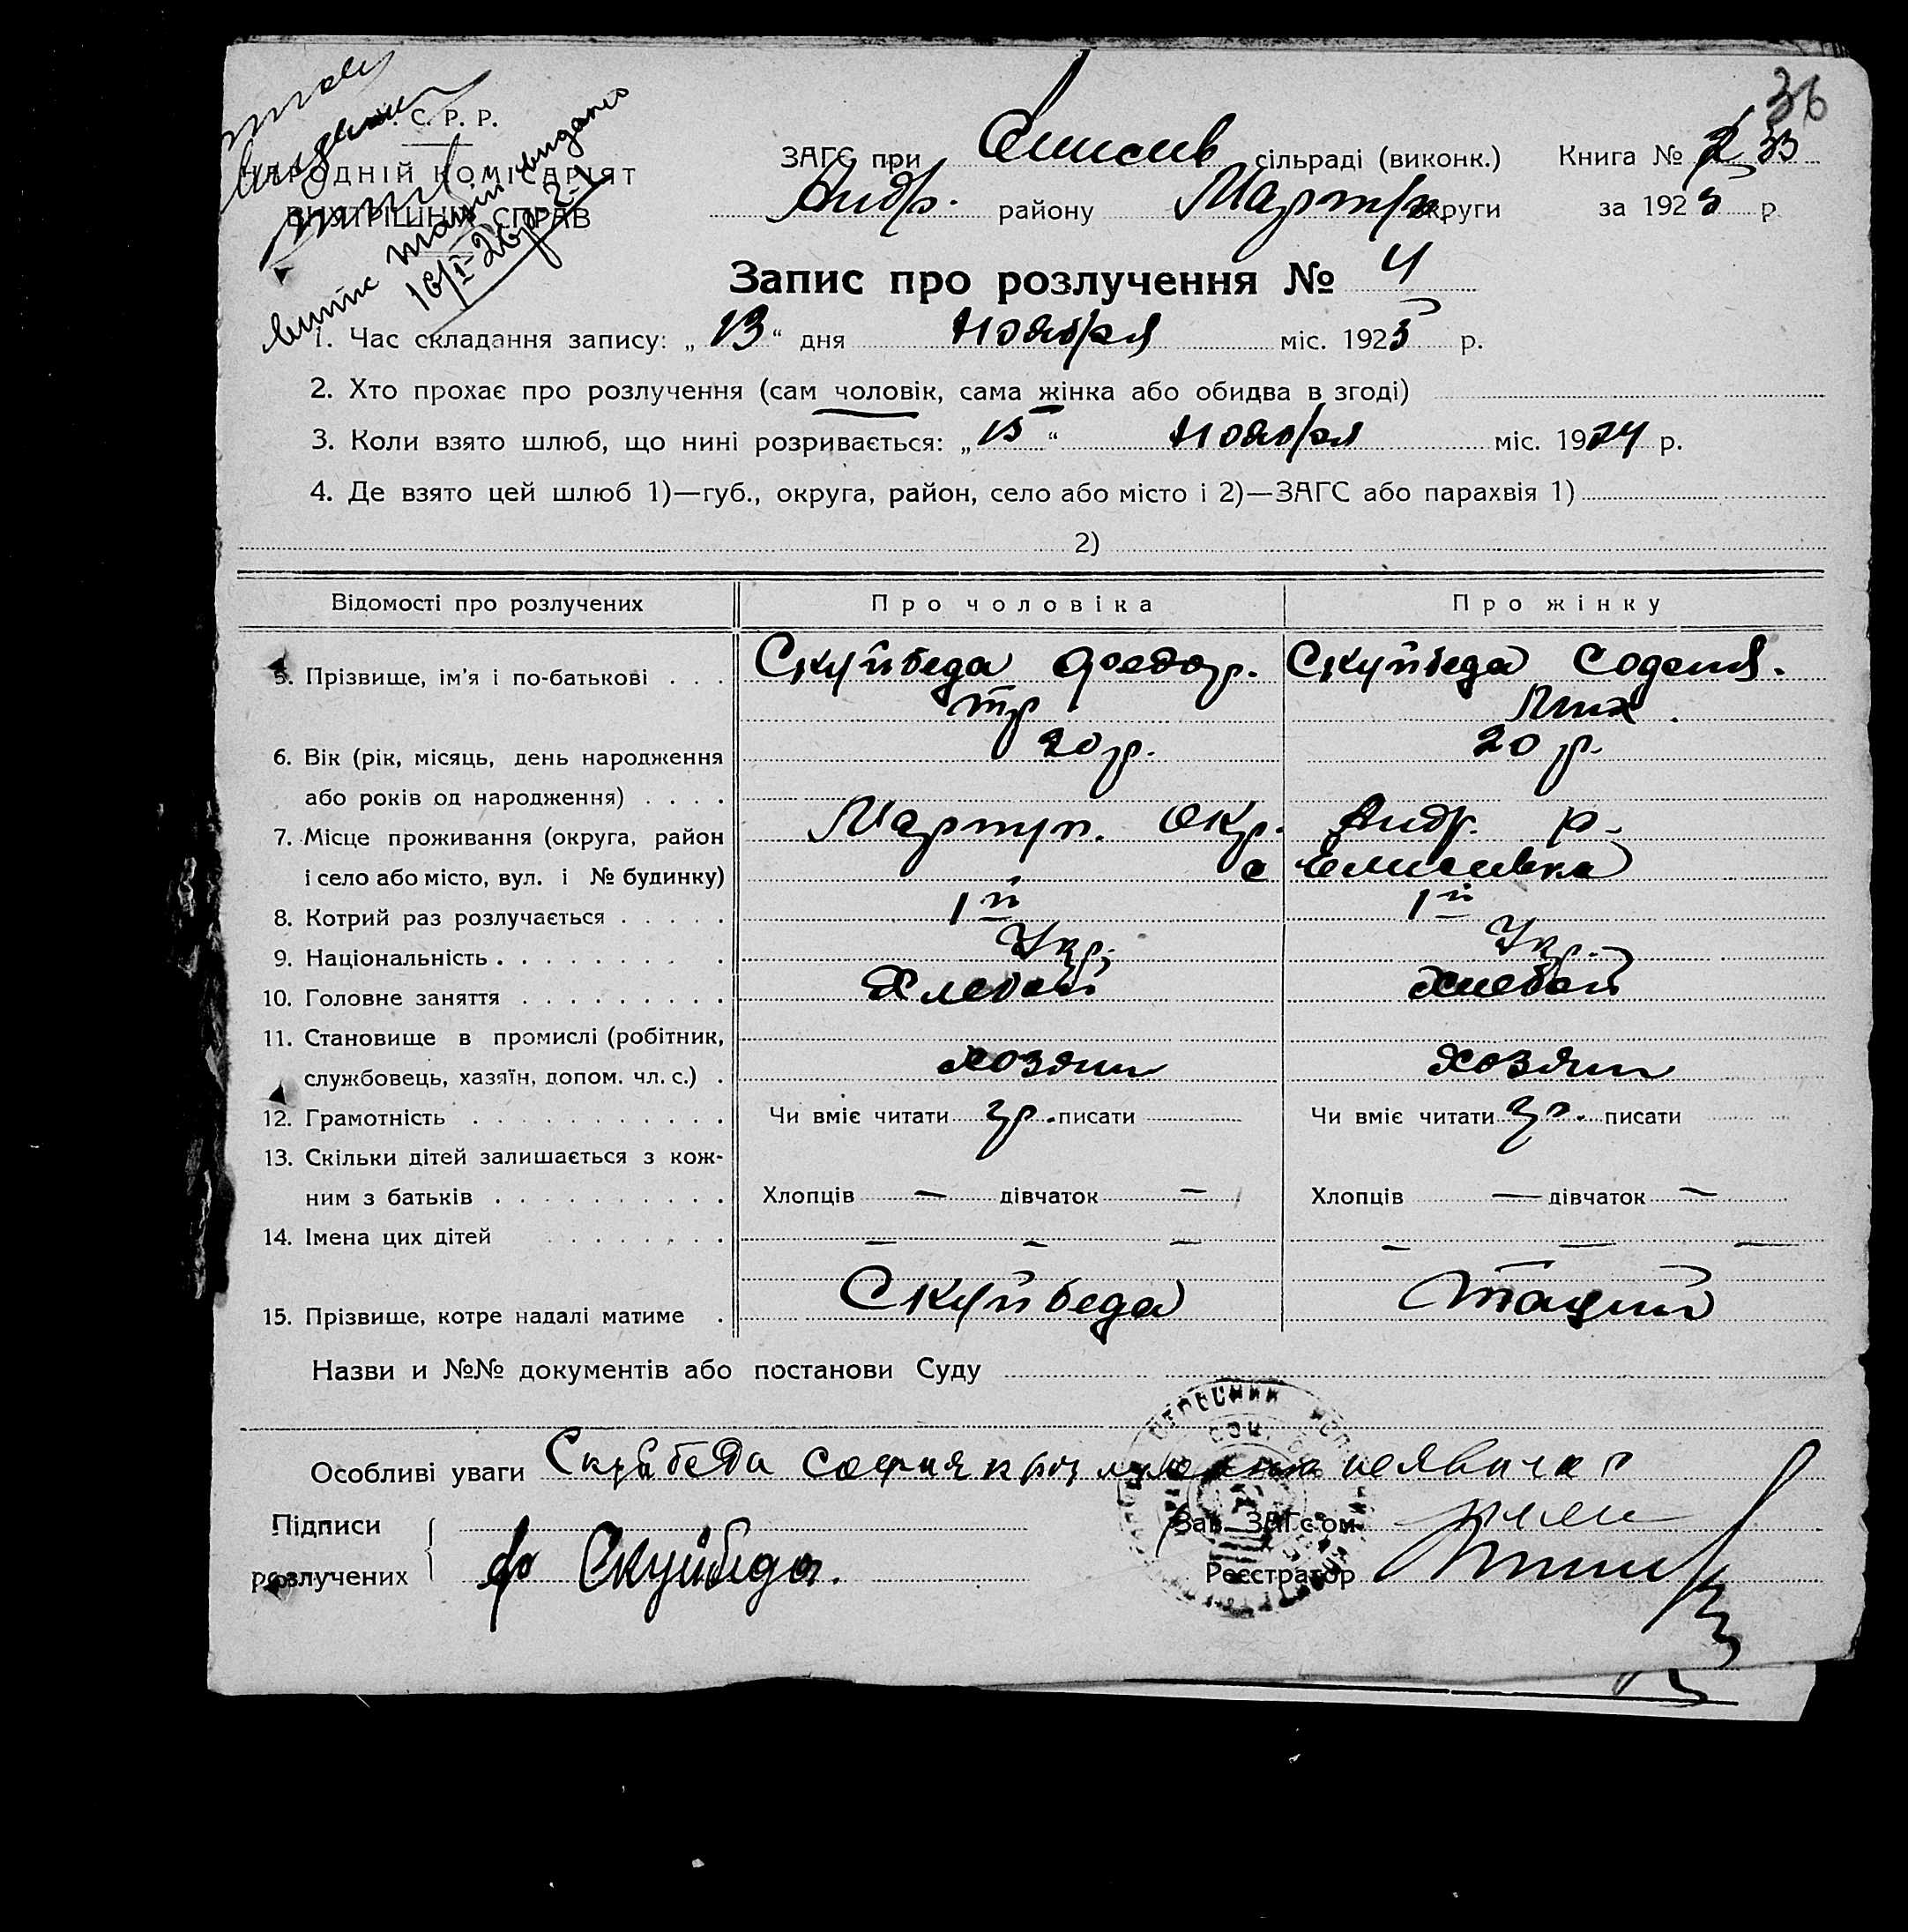 36
С. Р. Р.
НАРОДНІЙ КОМІСАРІЯТ
ВНУТРІШНІХ СПРАВ
витяг видано
16/I-26 р
ЗАГС при Елисив сільраді (виконк.) Книга № 33
Андр. району Мартуп округи за 1925 р
Запис про розлучення № 4
1. Час складання запису: „13“ дня Ноября міс. 1925 р.
2. Хто прохає про розлучення (сам чоловік, сама жінка або обидва в згоді)
3. Коли взято шлюб, що нині розривається: „15“ Ноября міс. 1924 р.
4. Де взято цей шлюб 1)—губ., округа, район, село або місто і 2)—ЗАГС або парахвія 1)
2)
Відомості про розлучених Про чоловіка Про жінку
5. Прізвище, ім'я і по-батькові . . . Скуйбеда Федор. Скуйбеда Софія.
Тр Мих.
6. Вік (рік, місяць, день народження 20 р. 20 р.
або років од народження) . . . .
7. Місце проживання (округа, район Мартуп. Окр. Андр. р.
і село або місто, вул. і № будинку) с Елисивка
8. Котрий раз розлучається . . . . . 1й 1й
9. Національність . . . . . . . . . Укр. Укр.
10. Головне заняття . . . . . . . . . Хлебоп Хлебоп
11. Становище в промислі (робітник,
службовець, хазяїн, допом. чл. с.) . хозяин хозяин
12. Грамотність . . . . . . . . . . . Чи вміє читати гр. писати Чи вміє читати гр. писати
13. Скільки дітей залишається з кож-
ним з батьків . . . . . . . . . . Хлопців — дівчаток — Хлопців — дівчаток —
14. Імена цих дітей . . . . . . . . — — — — — —
15. Прізвище, котре надалі матиме . Скуйбеда Таций
Назви и №№ документів або постанови Суду
Особливі уваги Скуйбеда София к розлучению неявилас
Підписи
розлучених Ф Скуйбеда.
Зав. ЗАГС'ом
Реєстратор